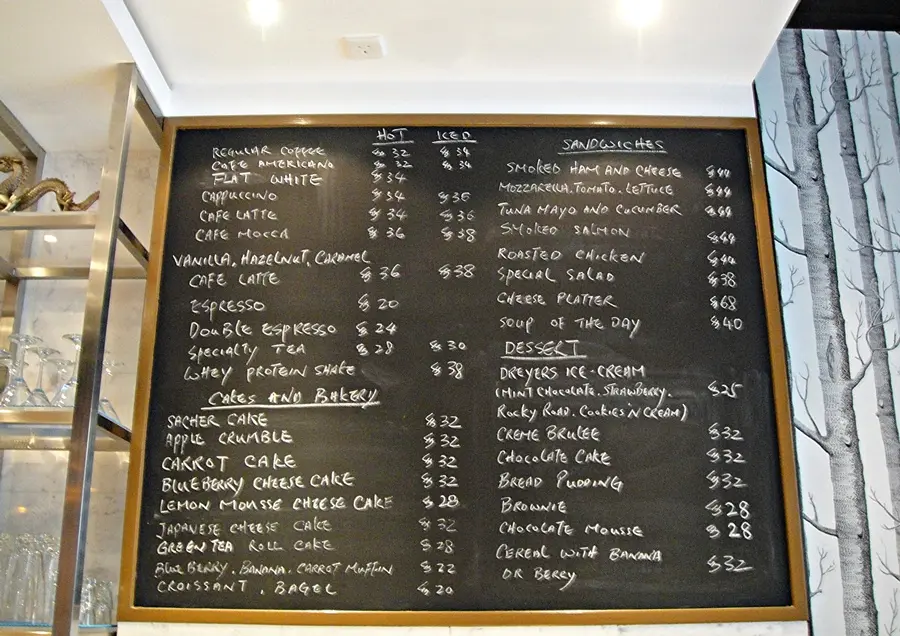 HOT ICED
REGULAR COFFEE $32 $34
CAFE AMERICANO $32 $34
FLAT WHITE $34
CAPPUCCINO $34 $36
CAFE LATTE $34 $36
CAFE MOCCA $36 $38
VANILLA, HAZELNUT, CARAMEL
CAFE LATTE $36 $38
ESPRESSO $20
DOUBLE ESPRESSO $24
SPECIALTY TEA $28 $30
WHEY PROTEIN SHAKE $38
CAKES AND BAKERY
SACHER CAKE $32
APPLE CRUMBLE $32
CARROT CAKE $32
BLUEBERRY CHEESE CAKE $32
LEMON MOUSSE CHEESE CAKE $28
JAPANESE CHEESE CAKE $32
GREEN TEA ROLL CAKE $28
BLUEBERRY. BANANA. CARROT MUFFIN $22
CROISSANT. BAGEL $20
SANDWICHES
SMOKED HAM AND CHEESE $44
MOZZARELLA. TOMATO. LETTUCE $44
TUNA MAYO AND CUCUMBER $44
SMOKED SALMON $44
ROASTED CHICKEN $44
SPECIAL SALAD $38
CHEESE PLATTER $68
SOUP OF THE DAY $40
DESSERT
DREYERS ICE-CREAM
(MINT CHOCOLATE. STRAWBERRY. $25
ROCKY ROAD. COOKIES 'N CREAM)
CREME BRULEE $32
CHOCOLATE CAKE $32
BREAD PUDDING $32
BROWNIE $28
CHOCOLATE MOUSSE $28
CEREAL WITH BANANA $32
OR BERRY